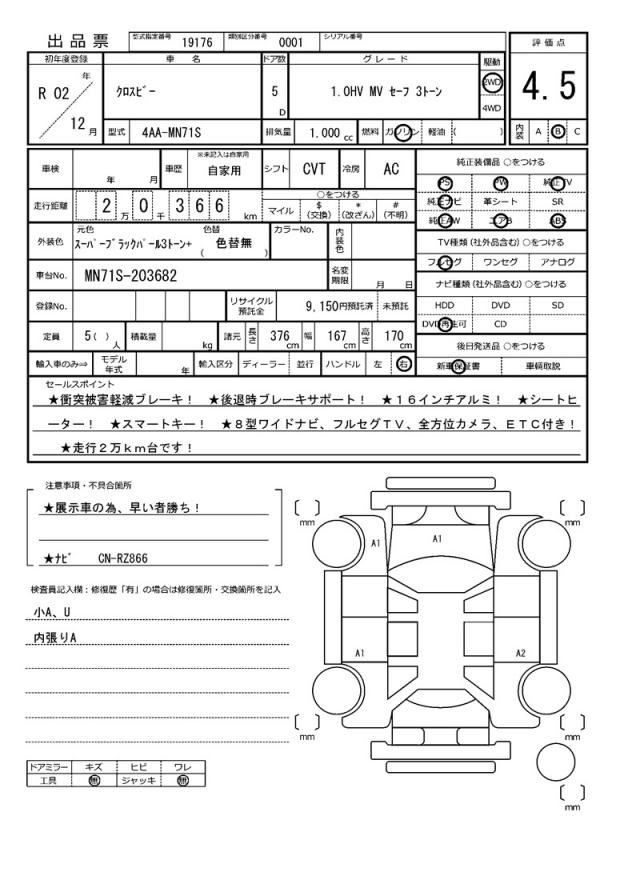 出品票 型式指定番号 19176 類別区分番号 0001 シリアル番号
初年度登録 車名 ドア数 グレード 駆動 評価点
R 02 年 12 月 クロスビー 5 D 1.0HV MV セーフ 3トーン 2WD 4WD 4.5
型式 4AA-MN71S 排気量 1.000 cc 燃料 ガソリン 軽油 ( ) 内装 A B C
車検 年 月 車歴 ※未記入は自家用 自家用 シフト CVT 冷房 AC 純正装備品 ○をつける
PS PW 純正TV
走行距離 2 万 0 千 3 6 6 km ○をつける
マイル $ (交換) * (改ざん) # (不明)
純正ナビ 革シート SR
純正AW エアB ABS
外装色 元色 スーパーブラックパール3トーン+ 色替 ( 色替無 ) カラーNo. 内装色
TV種類 (社外品含む) ○をつける
フルセグ ワンセグ アナログ
車台No. MN71S-203682 名変期限 月 日
ナビ種類 (社外品含む) ○をつける
登録No. リサイクル預託金 9,150円預託済 未預託
HDD DVD SD
DVD再生可 CD
定員 5( ) 人 積載量 kg 諸元 長さ 376 cm 幅 167 cm 高さ 170 cm
後日発送品 ○をつける
輸入車のみ⇒ モデル年式 年 輸入区分 ディーラー 並行 ハンドル 左 右
新車保証書 車輌取説
セールスポイント
★衝突被害軽減ブレーキ! ★後退時ブレーキサポート! ★16インチアルミ! ★シートヒ
ーター! ★スマートキー! ★8型ワイドナビ、フルセグTV、全方位カメラ、ETC付き!
★走行2万km台です!
注意事項・不具合箇所
★展示車の為、早い者勝ち!
★ナビ CN-RZ866
検査員記入欄:修復歴「有」の場合は修復箇所・交換箇所を記入
小A、U
内張りA
ドアミラー キズ ヒビ ワレ
工具 無 ジャッキ 無
mm
mm
A1
A1
A1
A2
mm
mm
mm